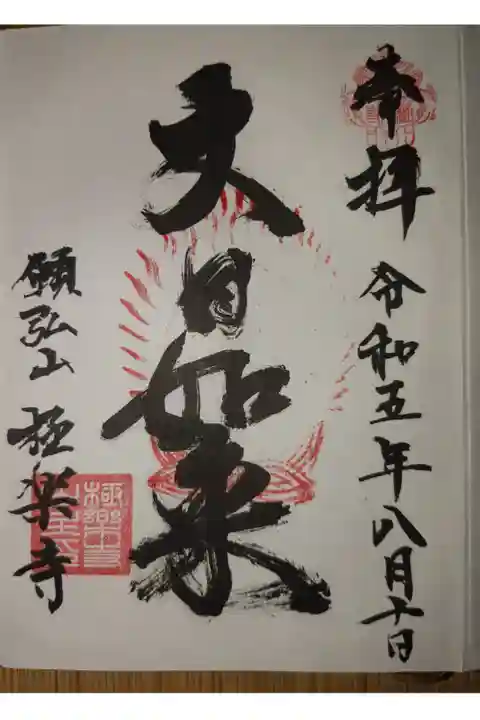 奉拝
令和五年八月十日
大日如来
願弘山 極楽寺